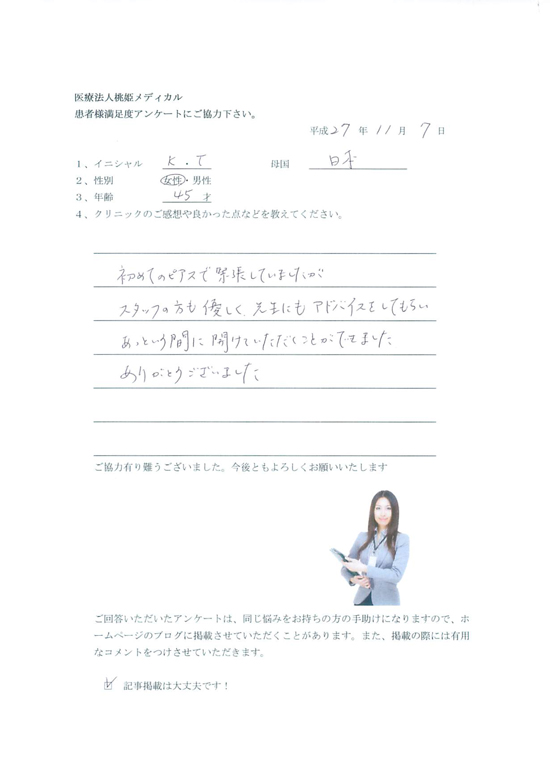 医療法人桃姫メディカル
患者様満足度アンケートにご協力下さい。
平成27年 11月 7日
1、イニシャル K.T 母国 日本
2、性別 女性・男性
3、年齢 45才
4、クリニックのご感想や良かった点などを教えてください。
初めてのピアスで緊張していましたが
スタッフの方も優しく、先生にもアドバイスをしてもらい
あっという間に開けていただくことができました
ありがとうございました
ご協力有り難うございました。今後ともよろしくお願いいたします
ご回答いただいたアンケートは、同じ悩みをお持ちの方の手助けになりますので、ホ
ームページのブログに掲載させていただくことがあります。また、掲載の際には有用
なコメントをつけさせていただきます。
☑ 記事掲載は大丈夫です！